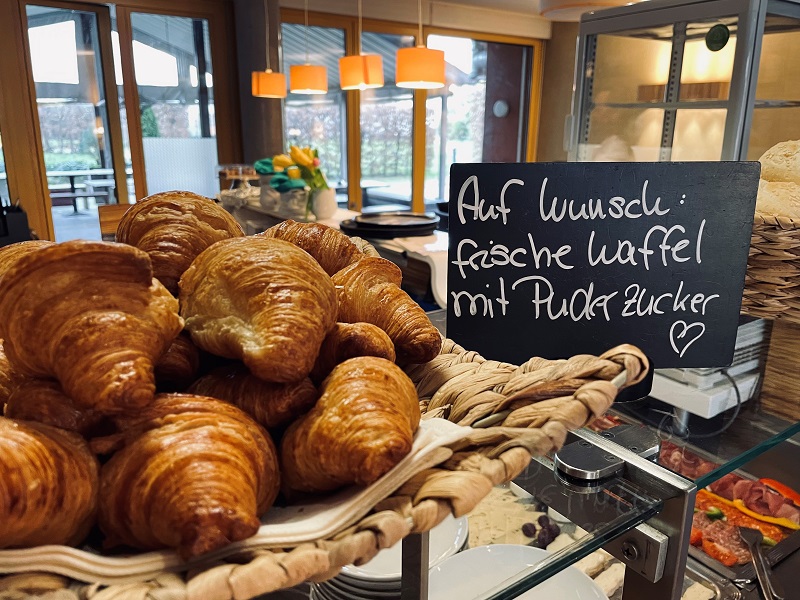 Auf Wunsch:
frische Waffel
mit Puderzucker